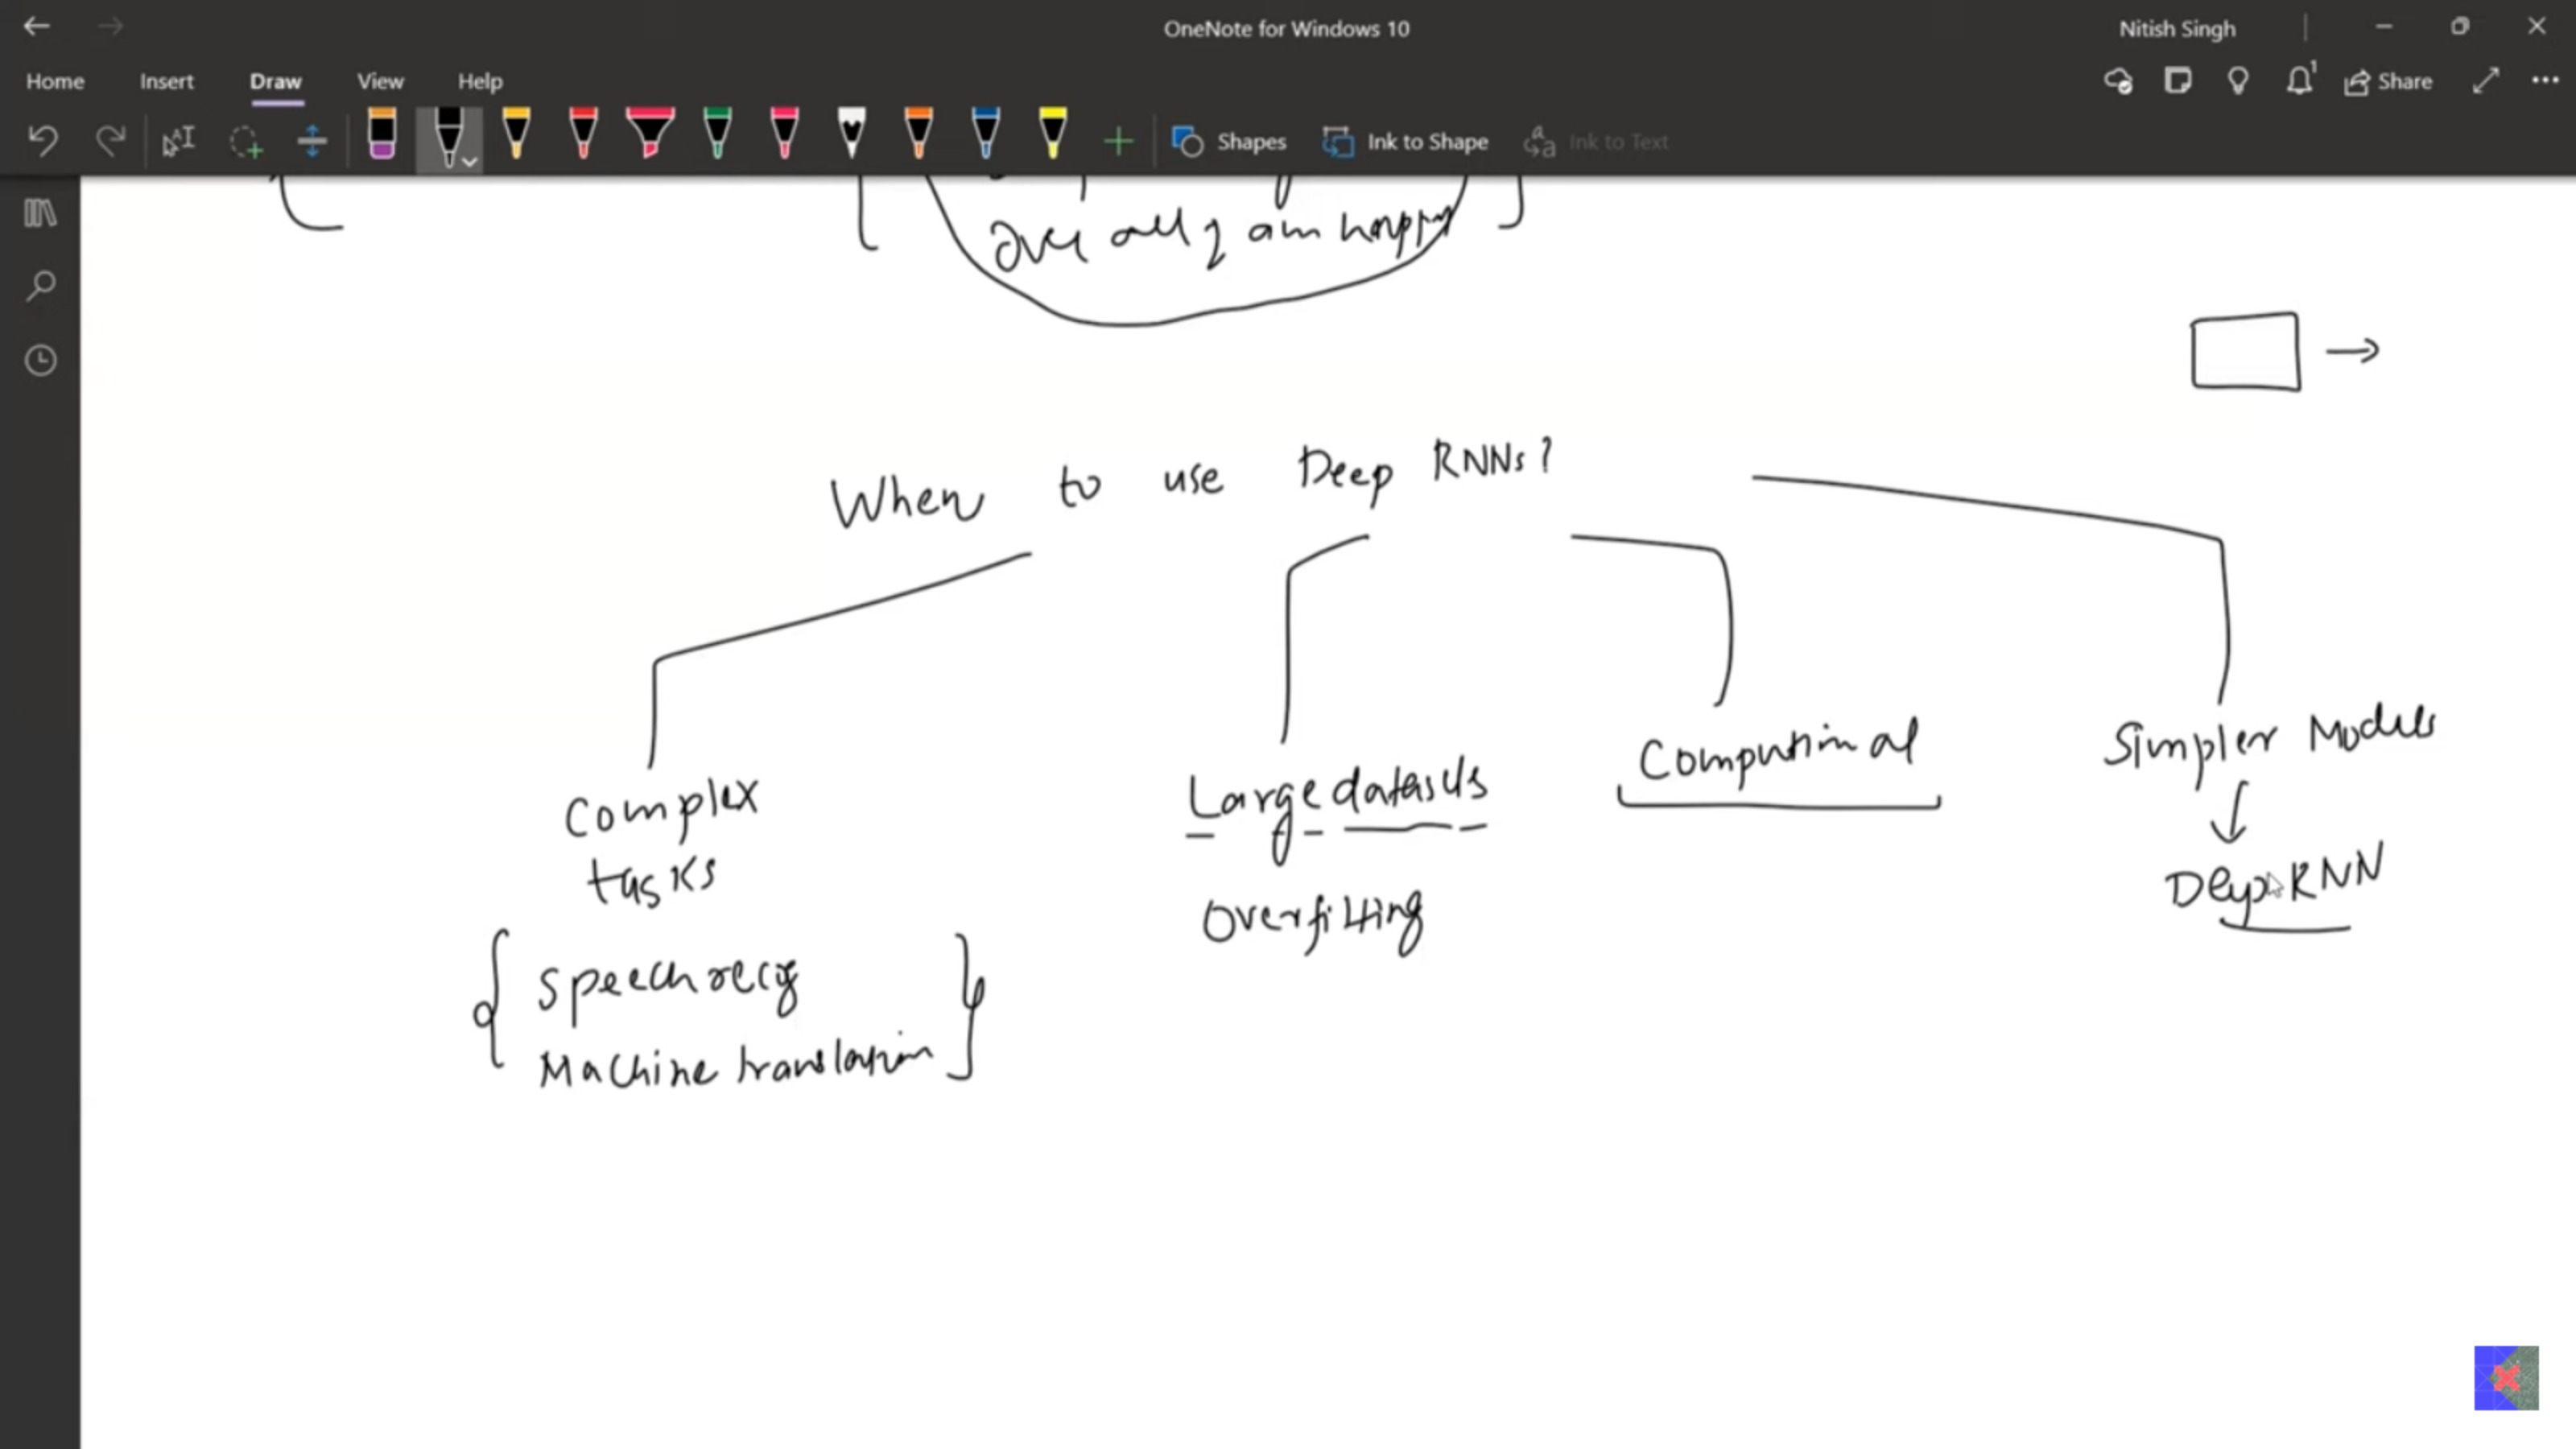 OneNote for Windows 10
Nitish Singh
Home Insert Draw View Help
1
Share
Shapes
Ink to Shape
Ink to Text
Over all I am happy
When to use Deep RNNs?
Complex
tasks
{ speech recog }
Machine translation
Large datasets
Overfitting
Computational
Simpler Models
↓
Deep RNN